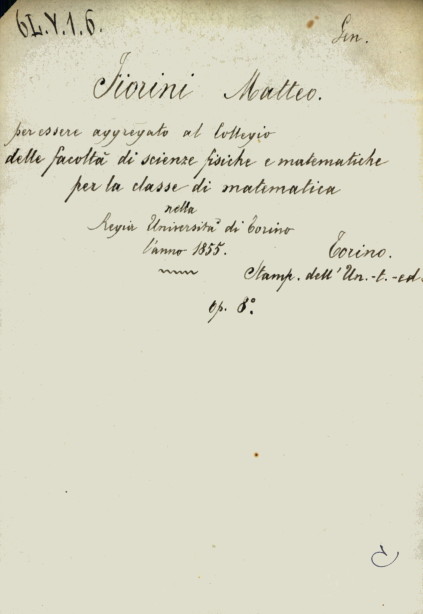 6L.Y.1.6.
Gen.
Fiorini Matteo.
per essere aggregato al Collegio
delle facoltà di scienze fisiche e matematiche
per la classe di matematica
nella
Regia Università di Torino
l'anno 1855.
Torino.
Stamp. dell'Un.-t.-ed.
op. 8°.